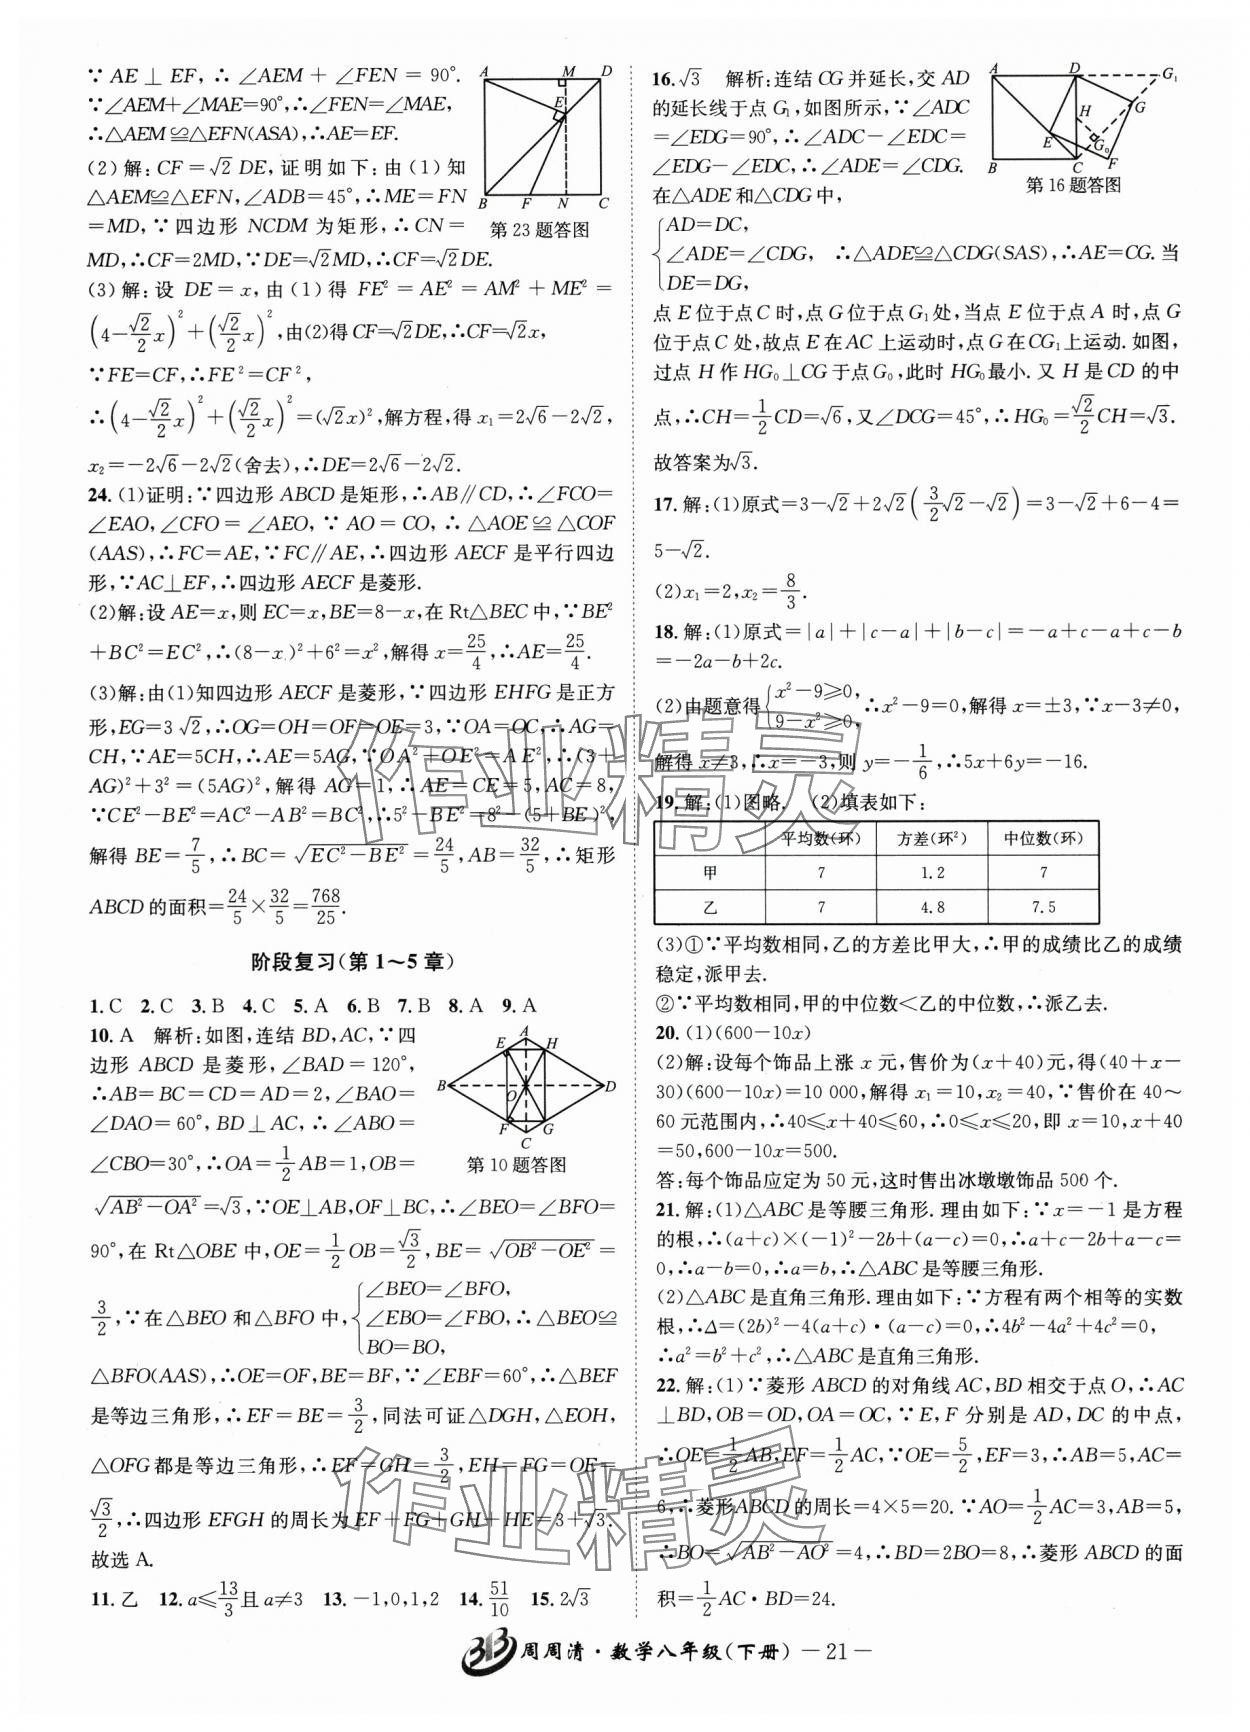 ∵ AE ⊥ EF, ∴ ∠AEM + ∠FEN = 90°.
∵∠AEM+∠MAE=90°,∴∠FEN=∠MAE,
∴△AEM≌△EFN(ASA),∴AE=EF.
(2)解:CF=√2 DE,证明如下:由(1)知
△AEM≌△EFN,∠ADB=45°,∴ME=FN
=MD,∵四边形 NCDM 为矩形,∴CN=
MD,∴CF=2MD,∵DE=√2MD,∴CF=√2DE.
A M D E B F N C
第 23 题答图
(3)解:设 DE=x,由(1)得 FE²=AE²=AM²+ME²=
(4-√2/2 x)²+(√2/2 x)²,由(2)得 CF=√2DE,∴CF=√2x,
∵FE=CF,∴FE²=CF²,
∴(4-√2/2 x)²+(√2/2 x)²=(√2x)²,解方程,得 x₁=2√6-2√2,
x₂=-2√6-2√2(舍去),∴DE=2√6-2√2.
24.(1)证明:∵四边形 ABCD 是矩形,∴AB∥CD,∴∠FCO=
∠EAO,∠CFO=∠AEO,∵AO=CO,∴△AOE≌△COF
(AAS),∴FC=AE,∵FC∥AE,∴四边形 AECF 是平行四边
形,∵AC⊥EF,∴四边形 AECF 是菱形.
(2)解:设 AE=x,则 EC=x,BE=8-x,在 Rt△BEC 中,∵BE²
+BC²=EC²,∴(8-x)²+6²=x²,解得 x=25/4,∴AE=25/4.
(3)解:由(1)知四边形 AECF 是菱形,∵四边形 EHFG 是正方
形,EG=3√2,∴OG=OH=OF=OE=3,∵OA=OC,∴AG=
CH,∵AE=5CH,∴AE=5AG,∵OA²+OE²=AE²,∴(3+
AG)²+3²=(5AG)²,解得 AG=1,∴AE=CE=5,AC=8,
∵CE²-BE²=AC²-AB²,∴5²-BE²=8²-(5+BE)²,
解得 BE=7/5,∴BC=√(EC²-BE²)=24/5,AB=32/5,∴矩形
ABCD 的面积=24/5×32/5=768/25.
阶段复习(第 1～5 章)
1. C 2. C 3. B 4. C 5. A 6. B 7. B 8. A 9. A
10. A 解析:如图,连结 BD,AC,∵四
边形 ABCD 是菱形,∠BAD=120°,
∴AB=BC=CD=AD=2,∠BAO=
∠DAO=60°,BD⊥AC,∴∠ABO=
∠CBO=30°,∴OA=1/2 AB=1,OB=
A E H B O D F G C
第 10 题答图
√(AB²-OA²)=√3,∵OE⊥AB,OF⊥BC,∴∠BEO=∠BFO=
90°,在 Rt△OBE 中,OE=1/2 OB=√3/2,BE=√(OB²-OE²)=
3/2,∵在△BEO 和△BFO 中,{∠BEO=∠BFO,
∠EBO=∠FBO,∴△BEO≌
BO=BO,
△BFO(AAS),∴OE=OF,BE=BF,∵∠EBF=60°,∴△BEF
是等边三角形,∴EF=BE=3/2,同法可证△DGH,△EOH,
△OFG 都是等边三角形,∴EF=GH=3/2,EH=FG=OE=
√3/2,∴四边形 EFGH 的周长为 EF+FG+GH+HE=3+√3.
故选 A.
11. 乙 12. a≤13/3且 a≠3 13. -1,0,1,2 14. 51/10 15. 2√3
16. √3 解析:连结 CG 并延长,交 AD
的延长线于点 G₁,如图所示,∵∠ADC
=∠EDG=90°,∴∠ADC-∠EDC=
∠EDG-∠EDC,∴∠ADE=∠CDG.
在△ADE 和△CDG 中,
A D G₁ H G E G₀ B C F
第 16 题答图
{AD=DC,
∠ADE=∠CDG, ∴△ADE≌△CDG(SAS),∴AE=CG. 当
DE=DG,
点 E 位于点 C 时,点 G 位于点 G₁ 处,当点 E 位于点 A 时,点 G
位于点 C 处,故点 E 在 AC 上运动时,点 G 在 CG₁ 上运动. 如图,
过点 H 作 HG₀⊥CG 于点 G₀,此时 HG₀ 最小. 又 H 是 CD 的中
点,∴CH=1/2 CD=√6,又∠DCG=45°,∴HG₀=√2/2 CH=√3.
故答案为√3.
17. 解:(1)原式=3-√2+2√2(3/2 √2-√2)=3-√2+6-4=
5-√2.
(2)x₁=2,x₂=8/3.
18. 解:(1)原式=|a|+|c-a|+|b-c|=-a+c-a+c-b
=-2a-b+2c.
(2)由题意得{x²-9≥0, 9-x²≥0,∴x²-9=0,解得 x=±3,∵x-3≠0,
解得 x≠3,∴x=-3,则 y=-1/6,∴5x+6y=-16.
19. 解:(1)图略. (2)填表如下:
平均数(环) 方差(环²) 中位数(环)
甲 7 1.2 7
乙 7 4.8 7.5
(3)①∵平均数相同,乙的方差比甲大,∴甲的成绩比乙的成绩
稳定,派甲去.
②∵平均数相同,甲的中位数<乙的中位数,∴派乙去.
20. (1)(600-10x)
(2)解:设每个饰品上涨 x 元,售价为(x+40)元,得(40+x-
30)(600-10x)=10 000,解得 x₁=10,x₂=40,∵售价在 40～
60 元范围内,∴40≤x+40≤60,∴0≤x≤20,即 x=10,x+40
=50,600-10x=500.
答:每个饰品应定为 50 元,这时售出冰墩墩饰品 500 个.
21. 解:(1)△ABC 是等腰三角形. 理由如下:∵x=-1 是方程
的根,∴(a+c)×(-1)²-2b+(a-c)=0,∴a+c-2b+a-c=
0,∴a-b=0,∴a=b,∴△ABC 是等腰三角形.
(2)△ABC 是直角三角形. 理由如下:∵方程有两个相等的实数
根,∴Δ=(2b)²-4(a+c)·(a-c)=0,∴4b²-4a²+4c²=0,
∴a²=b²+c²,∴△ABC 是直角三角形.
22. 解:(1)∵菱形 ABCD 的对角线 AC,BD 相交于点 O,∴AC
⊥BD,OB=OD,OA=OC,∵E,F 分别是 AD,DC 的中点,
∴OE=1/2 AB,EF=1/2 AC,∵OE=5/2,EF=3,∴AB=5,AC=
6,∴菱形ABCD 的周长=4×5=20. ∵AO=1/2 AC=3,AB=5,
∴BO=√(AB²-AO²)=4,∴BD=2BO=8,∴菱形 ABCD 的面
积=1/2 AC·BD=24.
作业精灵
作业精灵
周周清·数学八年级(下册) —21—